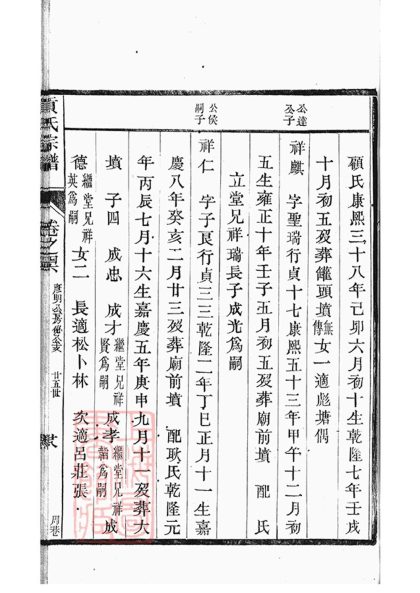 顧氏康熙三十八年己卯六月初十生乾隆七年壬戌
十月初五歿葬籬頭墳無傳女一適彪塘偶
公達公子
祥麒 字聖瑞行貞十七康熙五十三年甲午十二月初
五生雍正十年壬子五月初五歿葬廟前墳 配 氏
立堂兄祥瑞長子成光爲嗣
公侯嗣子
祥仁 字子良行貞三三乾隆二年丁巳正月十一生嘉
慶八年癸亥二月廿三歿葬廟前墳 配耿氏乾隆元
年丙辰七月十六生嘉慶五年庚申九月十一歿葬大
墳 子四 成忠 成才繼堂兄祥賢爲嗣 成孝繼堂兄祥爲嗣 成
德繼堂兄祥英爲嗣 女二 長適松卜林 次適呂莊張
氏宗譜 卷之 廿五世